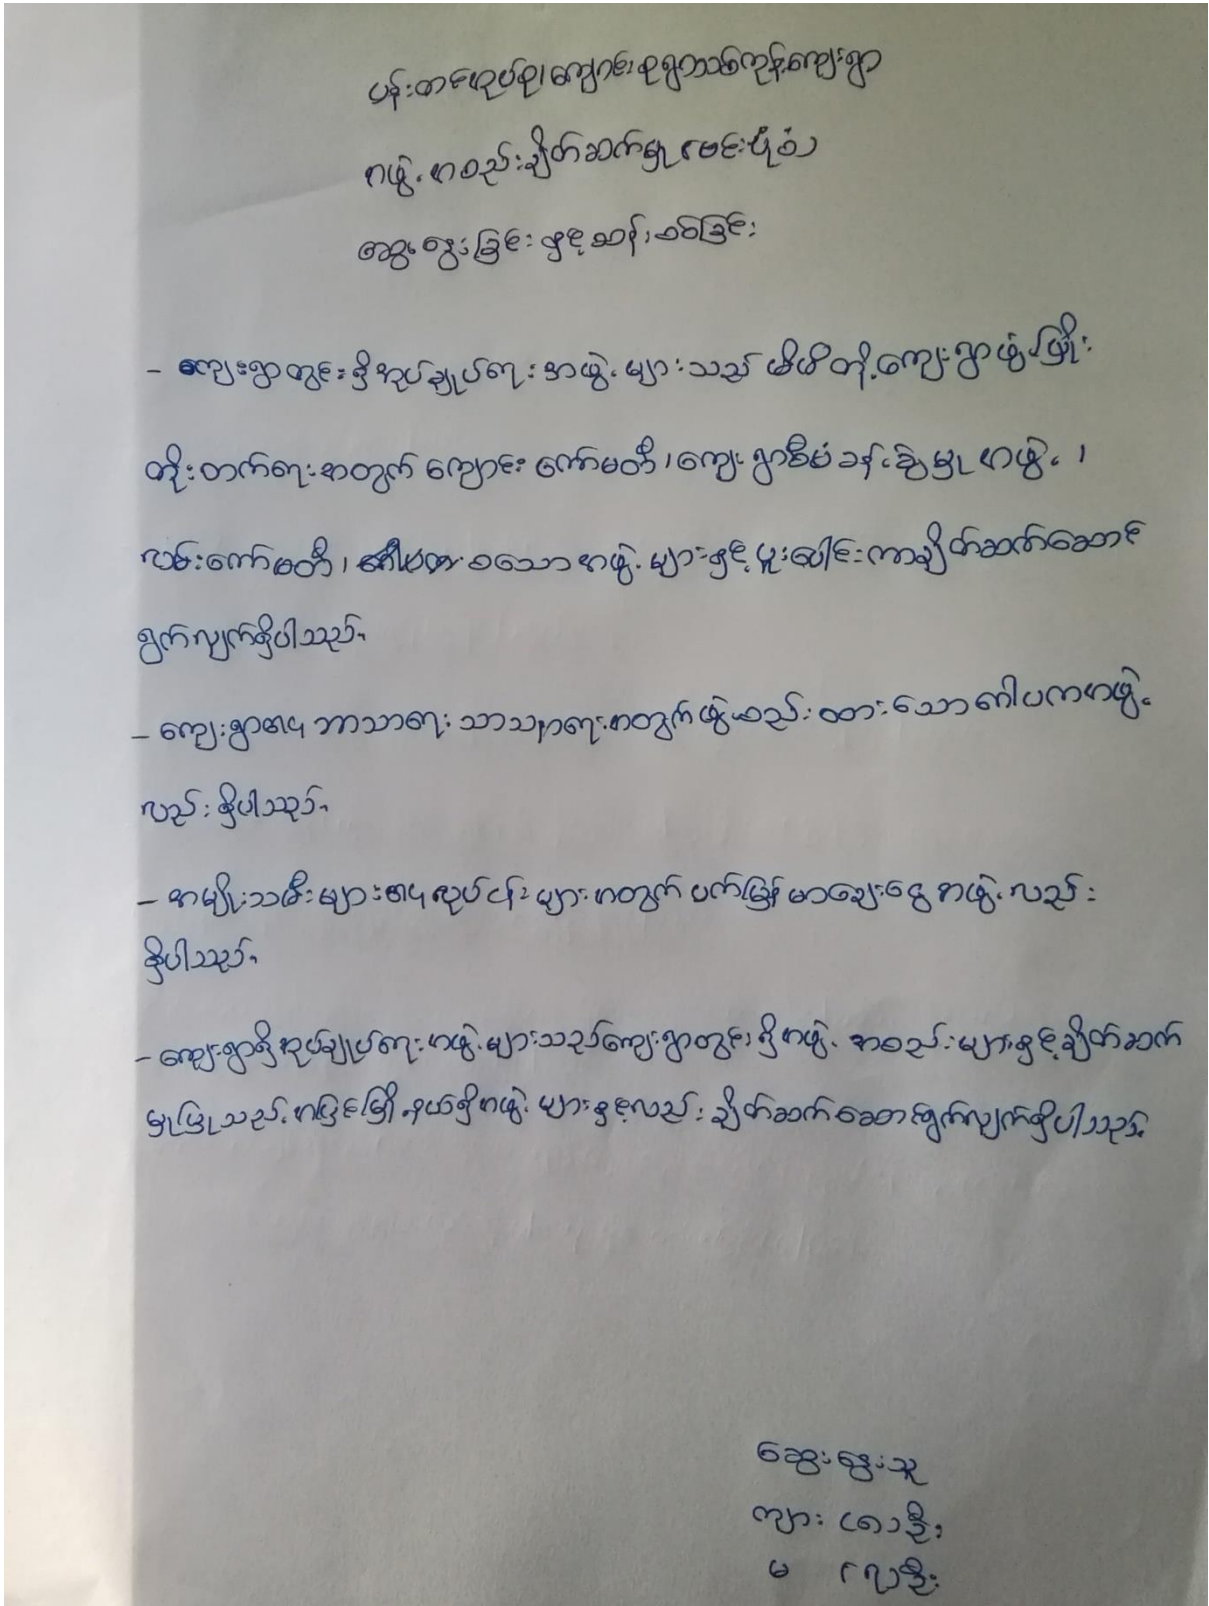 ပန်းတင်အုပ်စု၊ ကျောင်းစုရွာသစ်ကုန်းကျေးရွာ
အဖွဲ့အစည်းချိတ်ဆက်မှု (ဗင်းပုံစံ)
ဆွေးနွေးခြင်းနှင့်ဆန်းစစ်ခြင်း
- ကျေးရွာတွင်းရှိအုပ်ချုပ်ရေးအဖွဲ့များသည် မိမိတို့ကျေးရွာဖွံ့ဖြိုး
တိုးတက်ရေးအတွက် ကျောင်းကော်မတီ၊ ကျေးရွာစီမံခန့်ခွဲမှုအဖွဲ့၊
လမ်းကော်မတီ၊ စသောအဖွဲ့များနှင့်ပူးပေါင်းကာချိတ်ဆက်ဆောင်
ရွက်လျက်ရှိပါသည်။
- ကျေးရွာ၏ ဘာသာရေး သာသနာရေးအတွက်ဖွဲ့စည်းထားသောဂေါပကအဖွဲ့
လည်းရှိပါသည်။
- အမျိုးသမီးများ၏လုပ်ငန်းများအတွက် ပက်မြန်မာချေးငွေအဖွဲ့လည်း
ရှိပါသည်။
- ကျေးရွာရှိအုပ်ချုပ်ရေးအဖွဲ့များသည်ကျေးရွာတွင်းရှိအဖွဲ့အစည်းများနှင့်ချိတ်ဆက်
မှုပြုသည့်အပြင်မြို့နယ်ရှိအဖွဲ့များနှင့်လည်းချိတ်ဆက်ဆောင်ရွက်လျက်ရှိပါသည်။
ဆွေးနွေးသူ
ကျား (၈)ဦး
မ (၇)ဦး